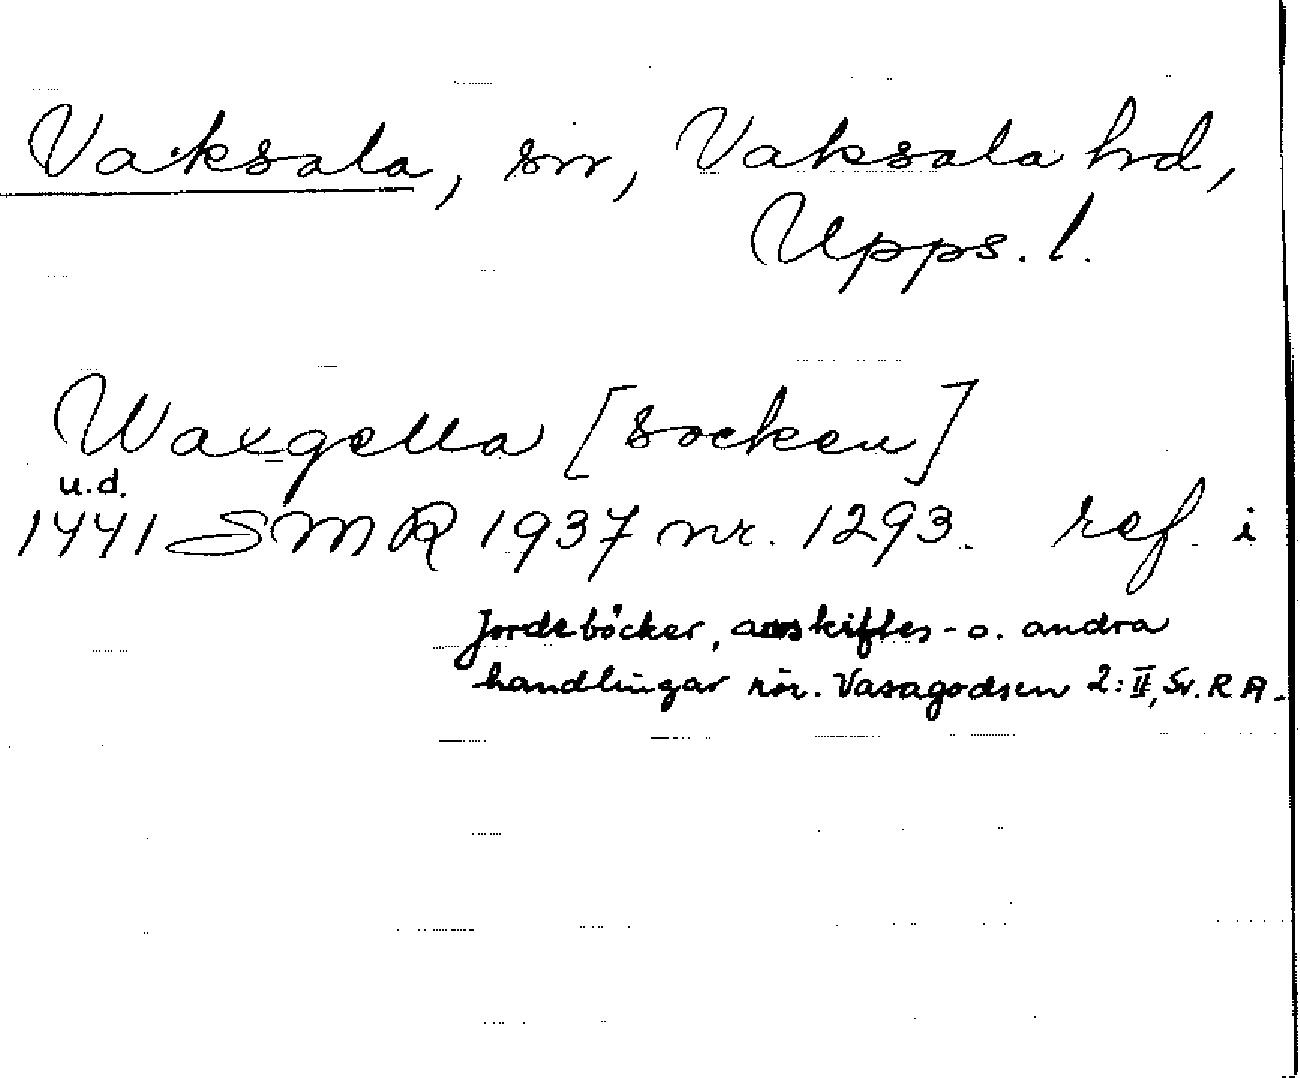 Vaksala, sn, Vaksala hd,
Upps. l.
Waxgella [socken]
u.d.
1441 SMR 1937 nr. 1293. ref. i
Jordeböcker, arvskiftes- o. andra
handlingar rör. Vasagodsen 2:II, Sv. RA.